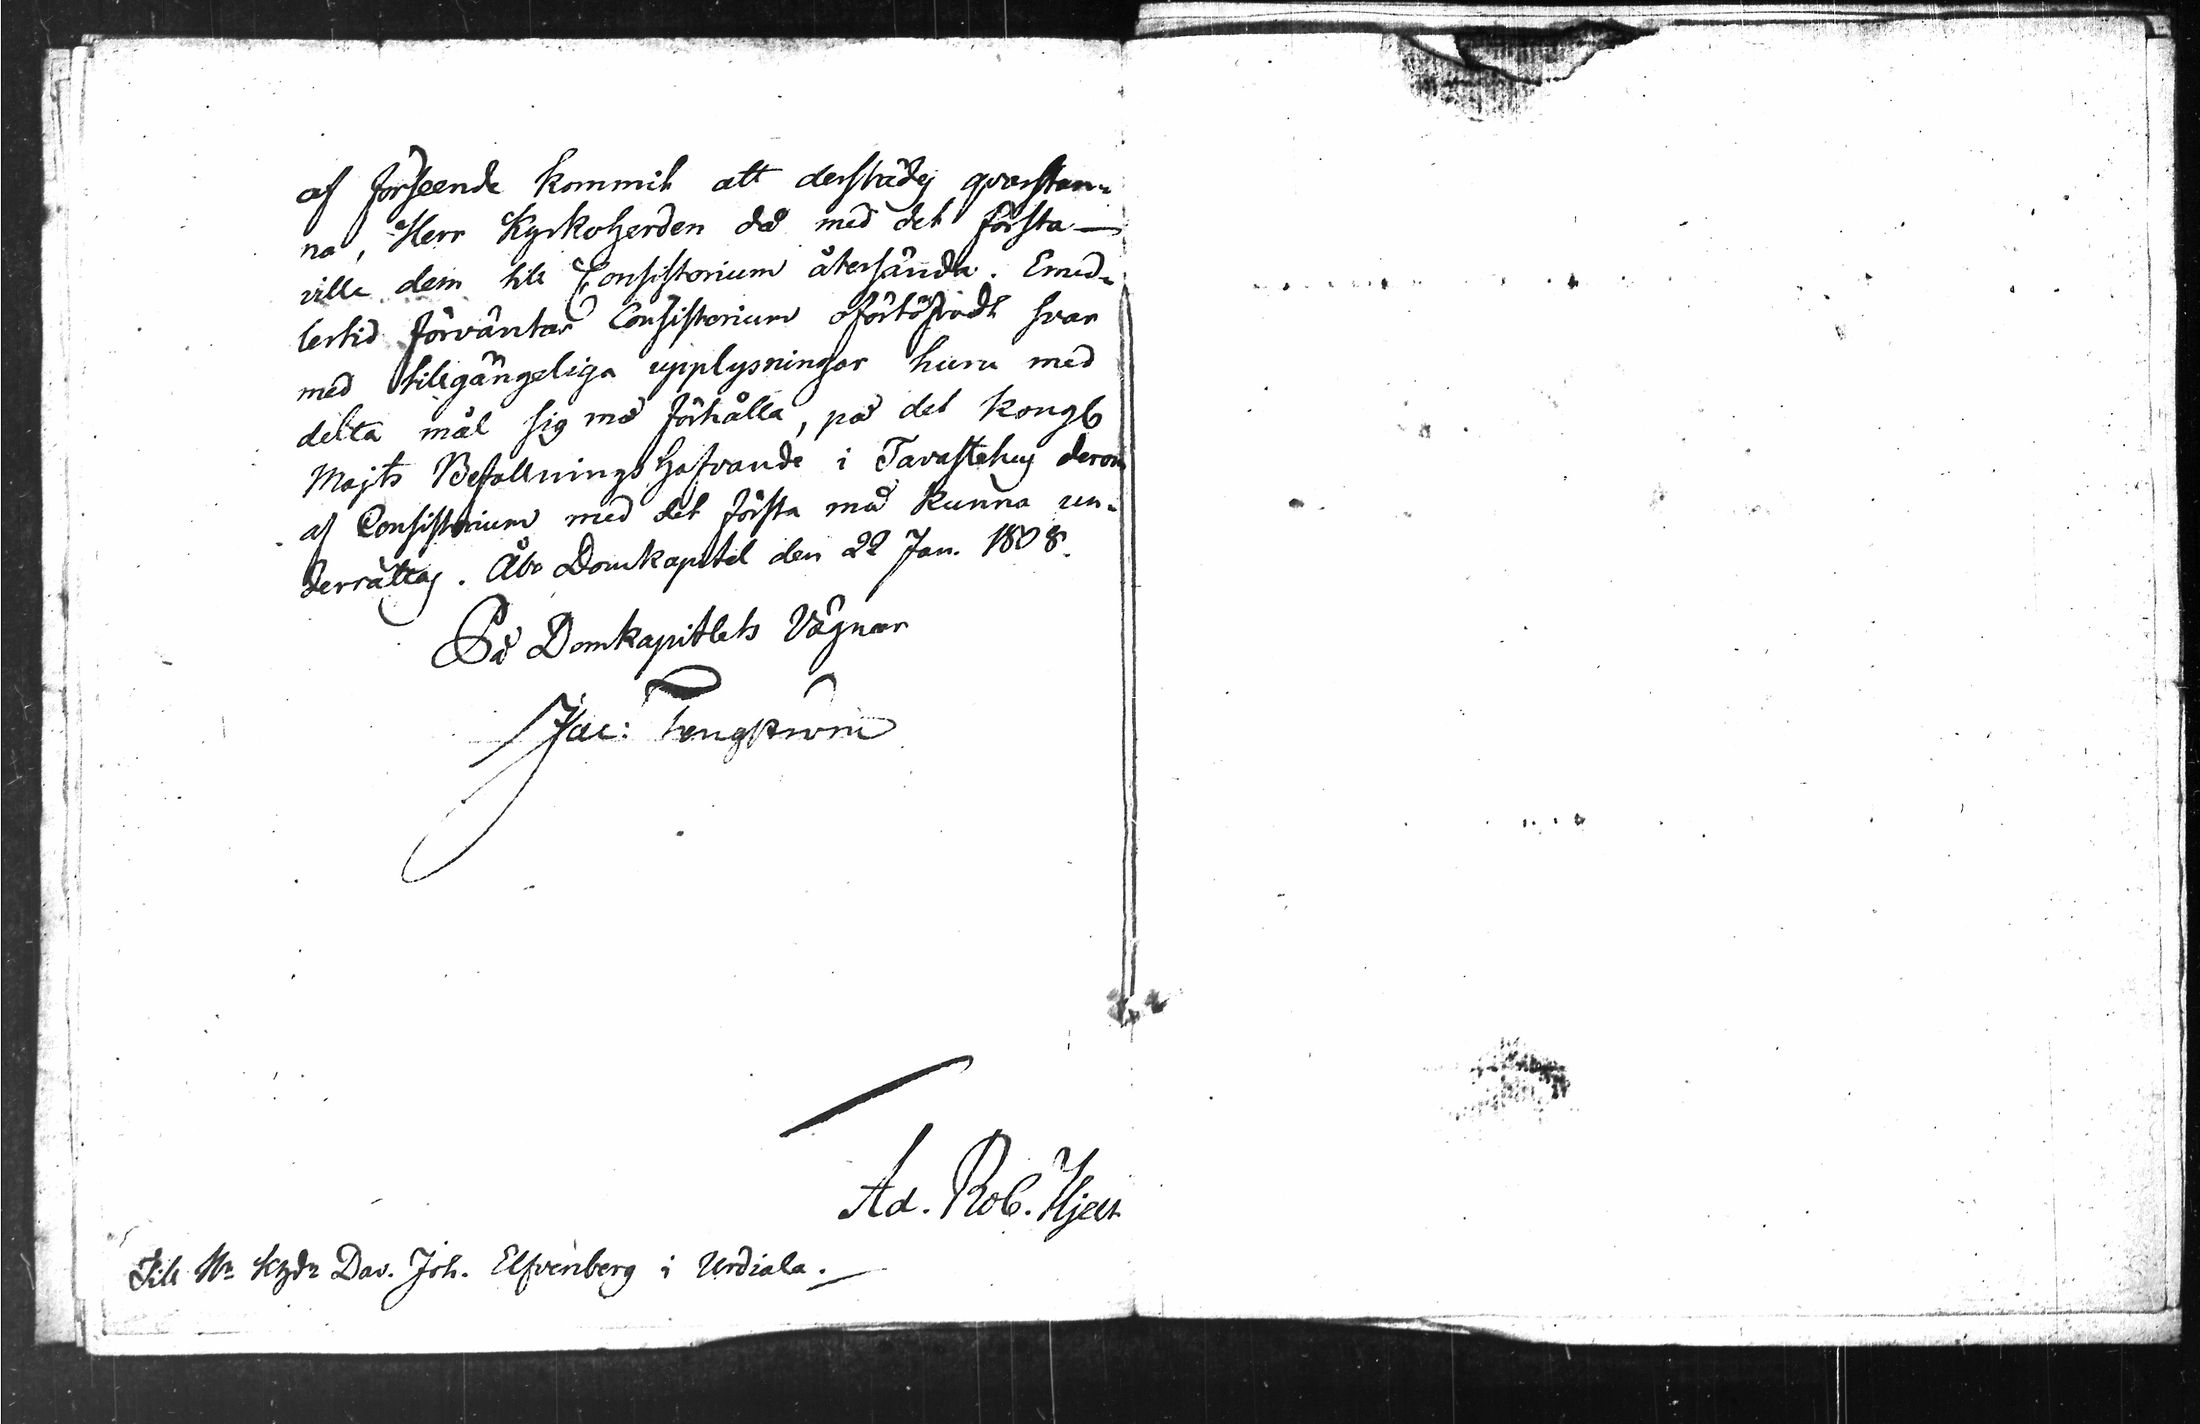 af förseende kommit att derstädes qvarstan-
na, Herr Kyrkoherden då med det första
ville dem till Consistorium återsända. Emed-
lertid förväntar Consistorium oförtöfvadt svar
med tillgängeliga upplysningar huru med
detta mål sig må förhålla, på det Kongl
Majts Befallningshafvande i Tavastehus derom
af Consistorium med det första må kunna un-
derrättas. Åbo Domkapitel den 22 Jan. 1808.
På Domkapitlets Vägnar
Jac: Tengström
Ad. Rob. Hjelt
Till Hr Khdn Dav. Joh. Elfvenberg i Urdiala.